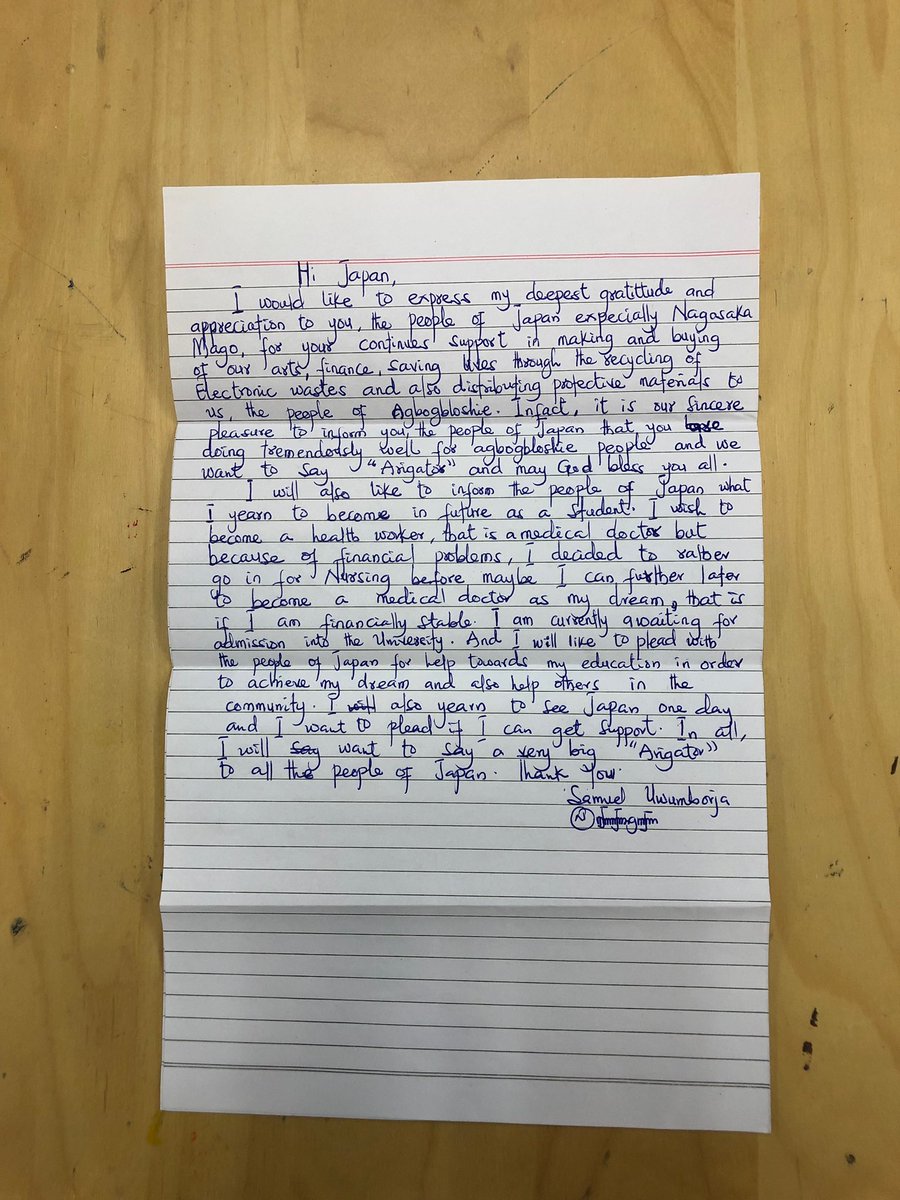 Hi Japan,
I would like to express my deepest gratittude and
appreciation to you, the people of Japan expecially Nagasaka
Mago, for your continues support in making and buying
of our arts, finance, saving lives through the recycling of
Electronic wastes and also distributing protective materials to
us, the people of Agbogbloshie. Infact, it is our sincere
pleasure to inform you, the people of Japan that you
doing tremendously well for agbogbloshie people and we
want to say "Arigator" and may God bless you all.
I will also like to inform the people of Japan what
I yearn to become in future as a student. I wish to
become a health worker, that is a medical doctor but
because of financial problems, I decided to rather
go in for Nursing before maybe I can further later
to become a medical doctor as my dream, that is
if I am financially stable. I am currently awaiting for
admission into the University. And I will like to plead with
the people of Japan for help towards my education in order
to achieve my dream and also help others in the
community. I will also yearn to see Japan one day
and I want to plead if I can get support. In all,
I will say want to say a very big "Arigator"
to all the people of Japan. Thank You.
Samuel Uwumborja